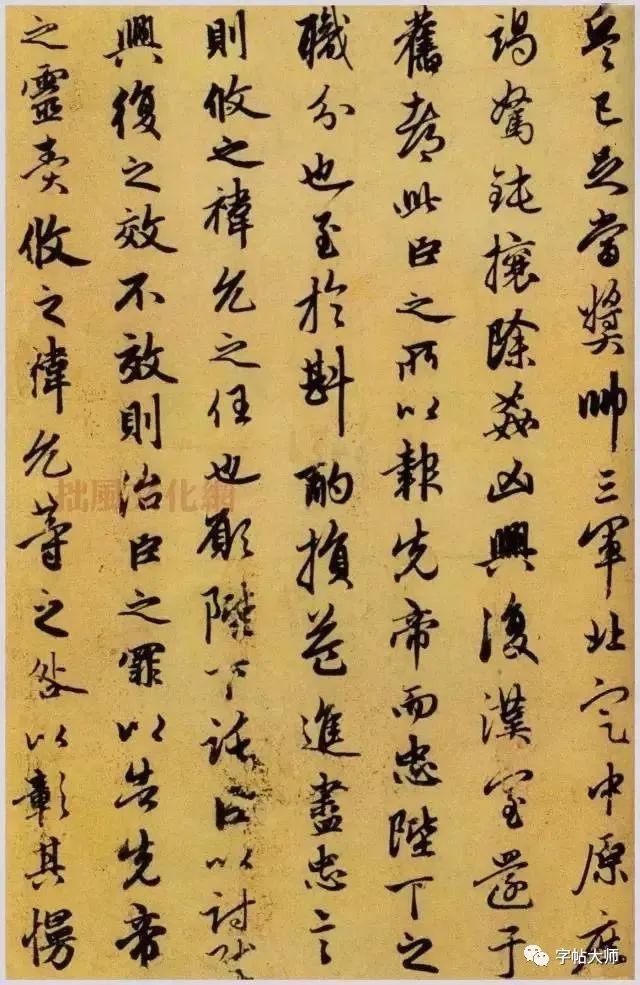 兵已足當獎帥三軍北定中原庶
竭駑鈍攘除姦凶興復漢室還于
舊都此臣之所以報先帝而忠陛下之
職分也至於斟酌損益進盡忠言
則攸之禕允之任也願陛下託臣以討賊
興復之效不效則治臣之罪以告先帝
之靈責攸之禕允等之咎以彰其慢
拙風文化網
字帖大师